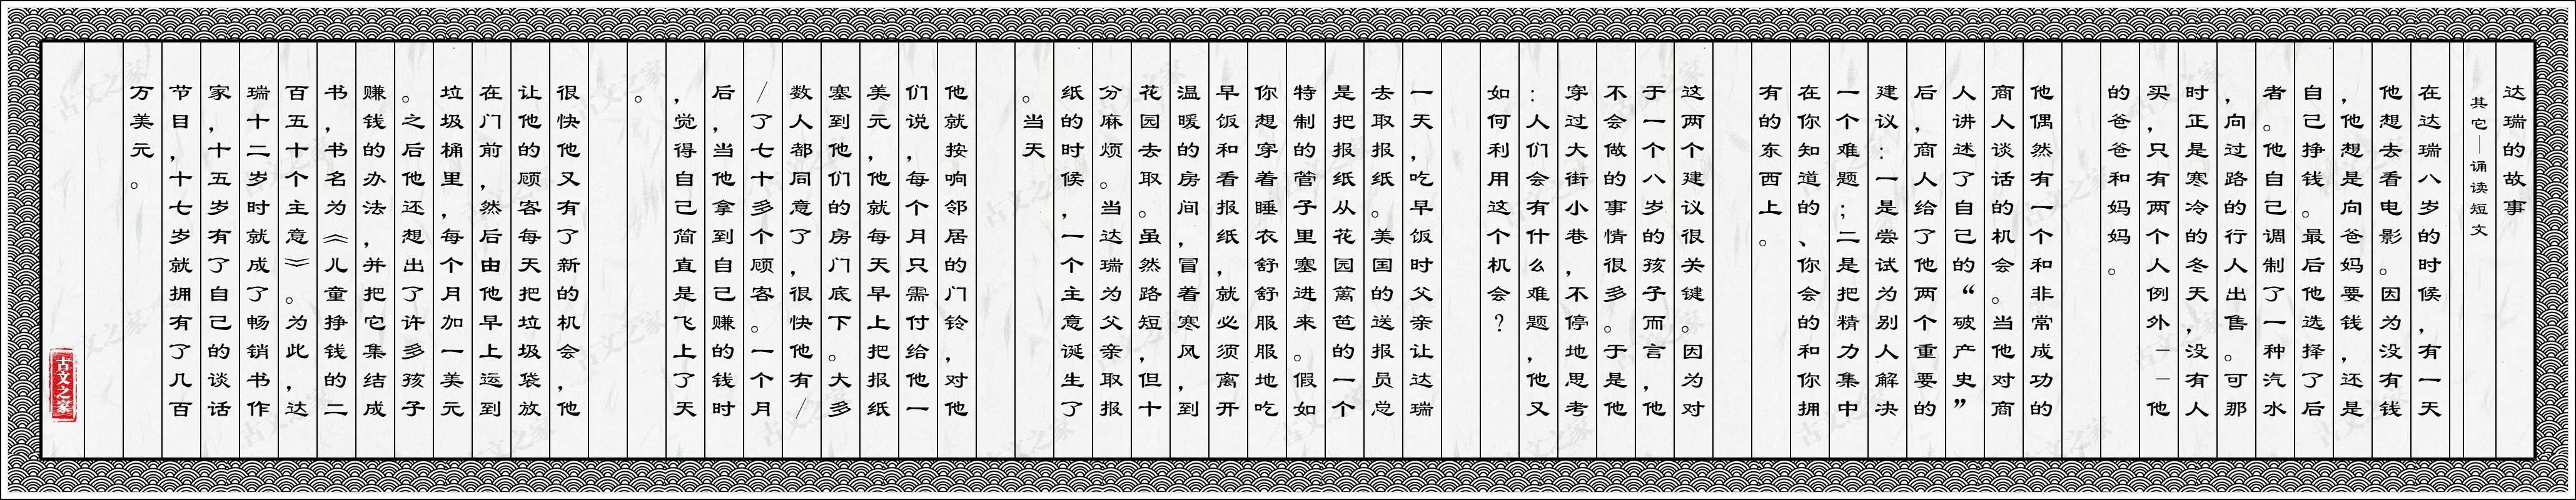 达瑞的故事
其它—诵读短文
在达瑞八岁的时候，有一天
他想去看电影。因为没有钱
，他想是向爸妈要钱，还是
自己挣钱。最后他选择了后
者。他自己调制了一种汽水
，向过路的行人出售。可那
时正是寒冷的冬天，没有人
买，只有两个人例外——他
的爸爸和妈妈。
他偶然有一个和非常成功的
商人谈话的机会。当他对商
人讲述了自己的“破产史”
后，商人给了他两个重要的
建议：一是尝试为别人解决
一个难题；二是把精力集中
在你知道的、你会的和你拥
有的东西上。
这两个建议很关键。因为对
于一个八岁的孩子而言，他
不会做的事情很多。于是他
穿过大街小巷，不停地思考
：人们会有什么难题，他又
如何利用这个机会？
一天，吃早饭时父亲让达瑞
去取报纸。美国的送报员总
是把报纸从花园篱笆的一个
特制的管子里塞进来。假如
你想穿着睡衣舒舒服服地吃
早饭和看报纸，就必须离开
温暖的房间，冒着寒风，到
花园去取。虽然路短，但十
分麻烦。当达瑞为父亲取报
纸的时候，一个主意诞生了
。当天
他就按响邻居的门铃，对他
们说，每个月只需付给他一
美元，他就每天早上把报纸
塞到他们的房门底下。大多
数人都同意了，很快他有/
/了七十多个顾客。一个月
后，当他拿到自己赚的钱时
，觉得自己简直是飞上了天
。
很快他又有了新的机会，他
让他的顾客每天把垃圾袋放
在门前，然后由他早上运到
垃圾桶里，每个月加一美元
。之后他还想出了许多孩子
赚钱的办法，并把它集结成
书，书名为《儿童挣钱的二
百五十个主意》。为此，达
瑞十二岁时就成了畅销书作
家，十五岁有了自己的谈话
节目，十七岁就拥有了几百
万美元。
古文之家